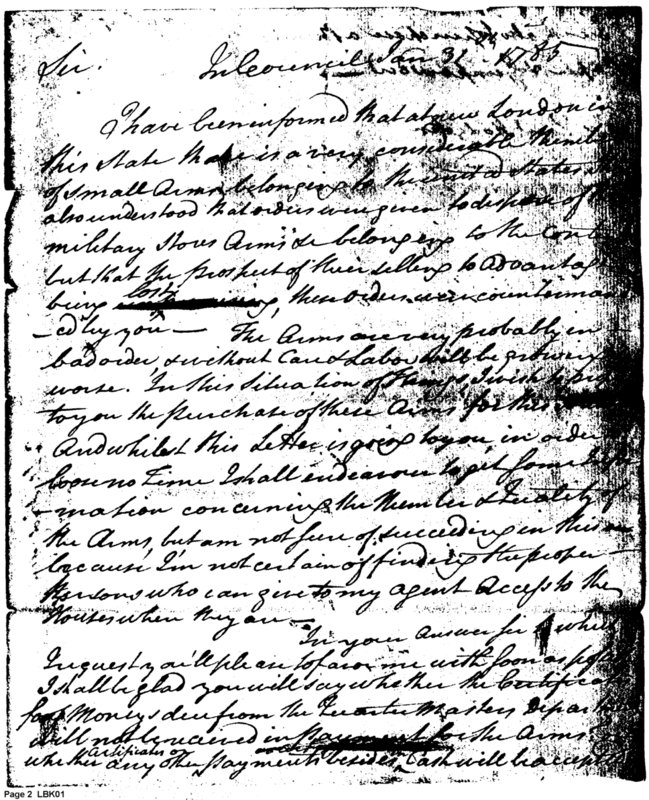 Sir. In Council Jan 31 1785
I have been informed that at new London in
this state there is a very considerable Numb
of small Arms belonging to the United States
also understood that orders were given to dispose of
military Stores Arms &c belonging to the Cont
but that the prospect of their selling to Advantag
being lost, these Orders were counterma
-ed by you — The Arms are very probably in
bad order, & without Care & Labor will be growing
worse. In this Situation of Things, I wish
to you the purchase of these Arms for this
And whilst this Letter is going to you, in order
loose no Time I shall endeavour to get some Infor
-mation concerning the Number & Quality of
the Arms, but am not sure of succeeding in this
because I'm not certain of finding the proper
Persons who can give to my agent Access to the
Houses where they are —
In your Answer Sir, which
I request you'll please to favor me with soon as pos
I shall be glad you will say whether the Certificat
for Moneys due from the Quarter Masters Departm
will not be received in payment for the Arms
Certificates or
whether any other payments besides Cash will be accepted
Page 2 LBK01